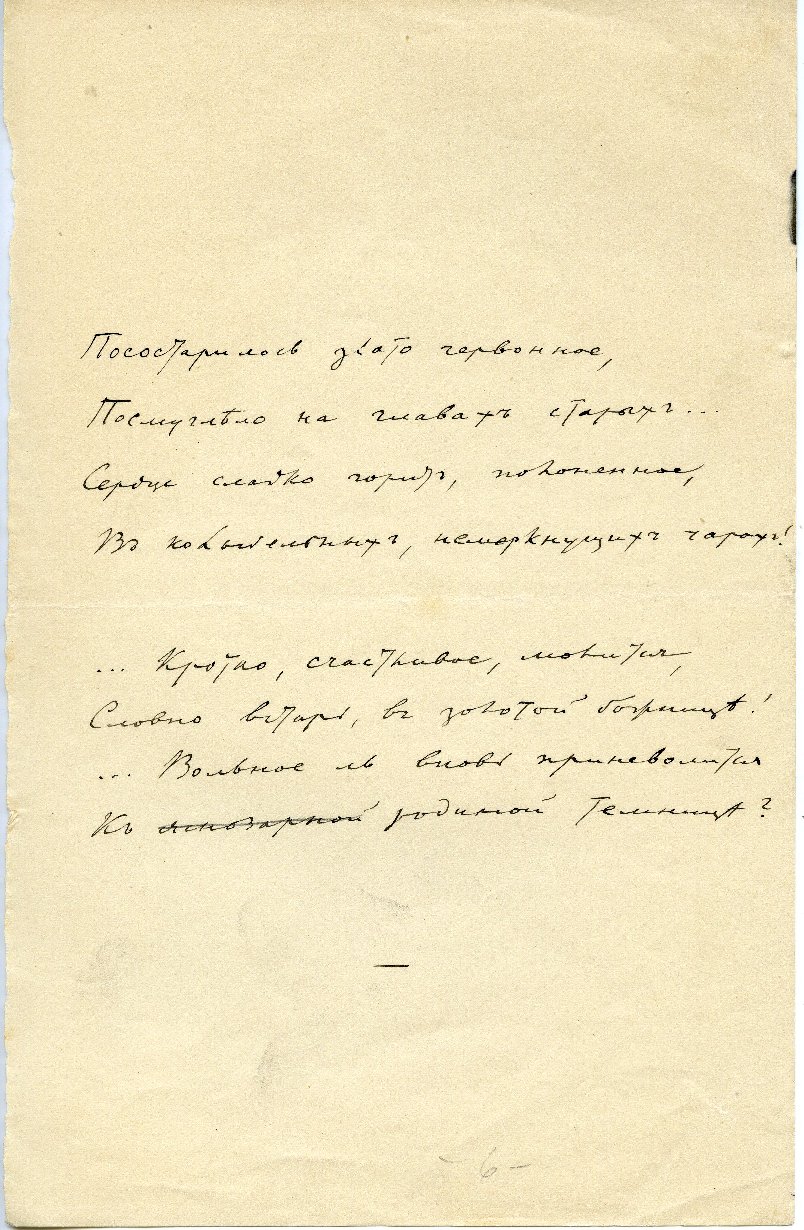 Посостарилось злато червонное,
Посмуглѣло на главахъ старыхъ...
Сердце сладко горитъ, полоненное,
Въ колыбельныхъ, немеркнущихъ чарахъ!
... Кротко, счастливое, молится,
Словно встарь, въ золотой божницѣ!
... Вольное ль вновь приневолится
Къ яснозарной родимой темницѣ?
- 6 -